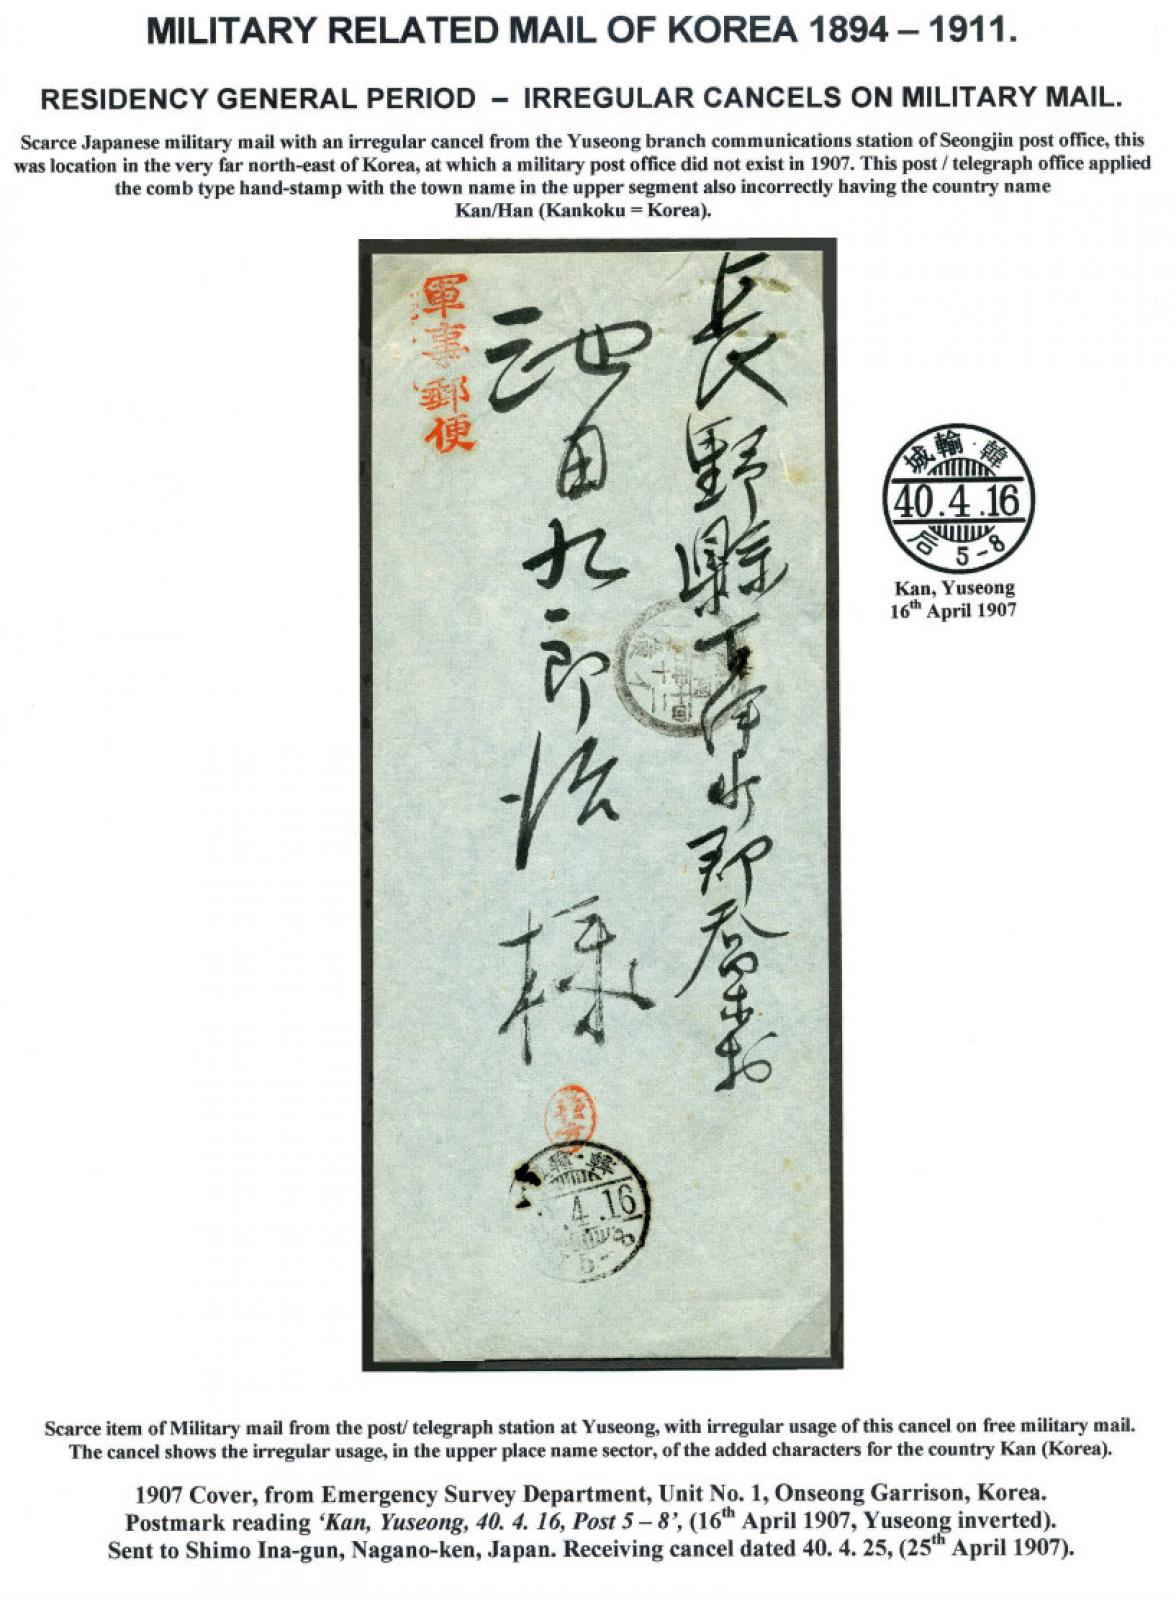 MILITARY RELATED MAIL OF KOREA 1894 – 1911.
RESIDENCY GENERAL PERIOD – IRREGULAR CANCELS ON MILITARY MAIL.
Scarce Japanese military mail with an irregular cancel from the Yuseong branch communications station of Seongjin post office, this
was location in the very far north-east of Korea, at which a military post office did not exist in 1907. This post / telegraph office applied
the comb type hand-stamp with the town name in the upper segment also incorrectly having the country name
Kan/Han (Kankoku = Korea).
軍事郵便
長野縣下伊那郡喬木村
池田九郎治様
城輸·韓
40.4.16
后 5-8
Kan, Yuseong
16th April 1907
韓
4.16
5-8
Scarce item of Military mail from the post/ telegraph station at Yuseong, with irregular usage of this cancel on free military mail.
The cancel shows the irregular usage, in the upper place name sector, of the added characters for the country Kan (Korea).
1907 Cover, from Emergency Survey Department, Unit No. 1, Onseong Garrison, Korea.
Postmark reading ‘Kan, Yuseong, 40. 4. 16, Post 5 – 8’, (16th April 1907, Yuseong inverted).
Sent to Shimo Ina-gun, Nagano-ken, Japan. Receiving cancel dated 40. 4. 25, (25th April 1907).